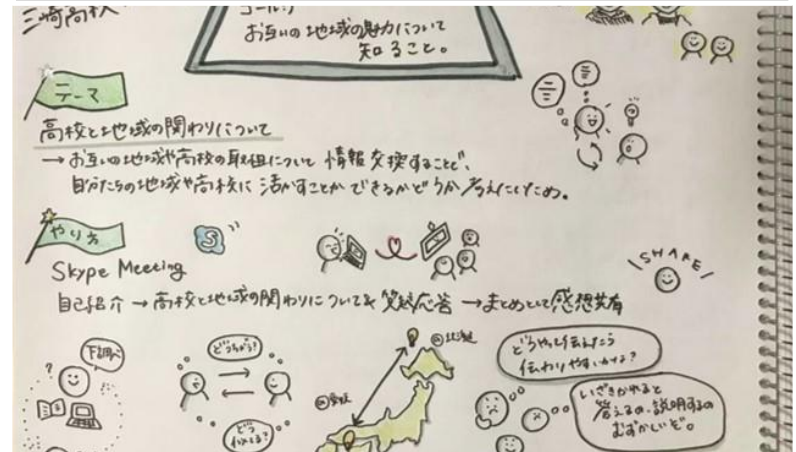 三崎高校
ゴール:
お互いの地域の魅力について
知ること。
テーマ
高校と地域の関わりについて
→お互いの地域や高校の取組について 情報交換することで、
自分たちの地域や高校に 活かすことができるかどうか考えたいため。
やり方
S
Skype Meeting
SHARE
自己紹介 → 高校と地域の関わりについて& 質疑応答 → まとめとして感想共有
下調べ
?
どうちがう?
どう
似てる?
北海道
愛媛
どうやったら伝えたろう
伝わりやすいかな?
いざきかれると
答えるの、説明するの
むずかしいぞ。